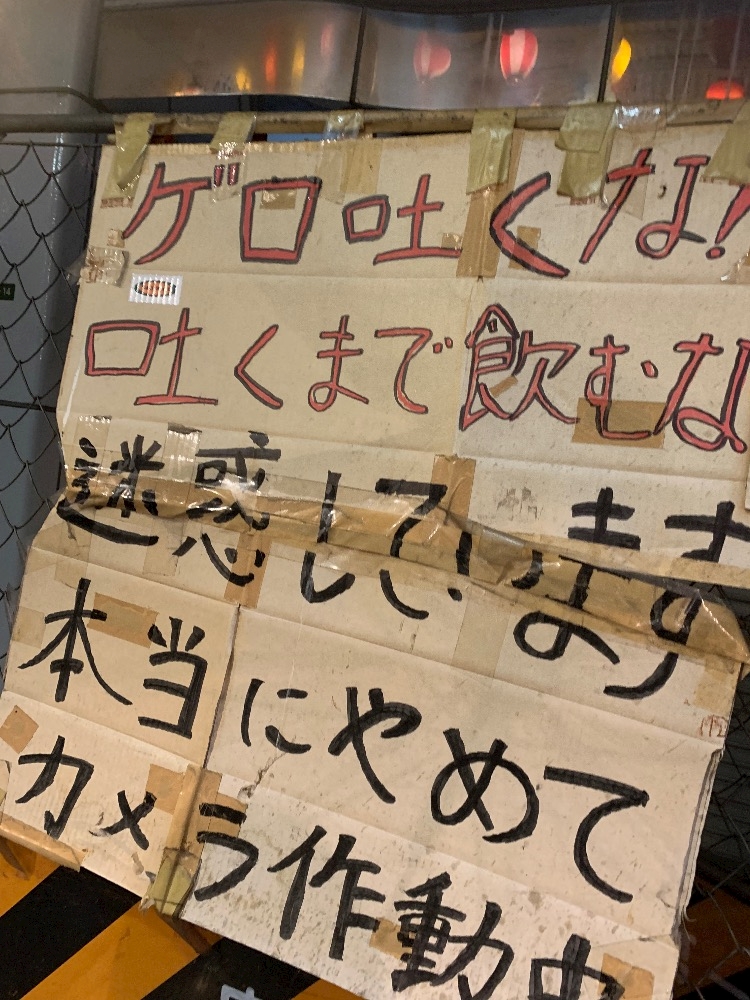 ゲロ吐くな!
吐くまで飲むな
迷惑しています
本当にやめて
カメラ作動中